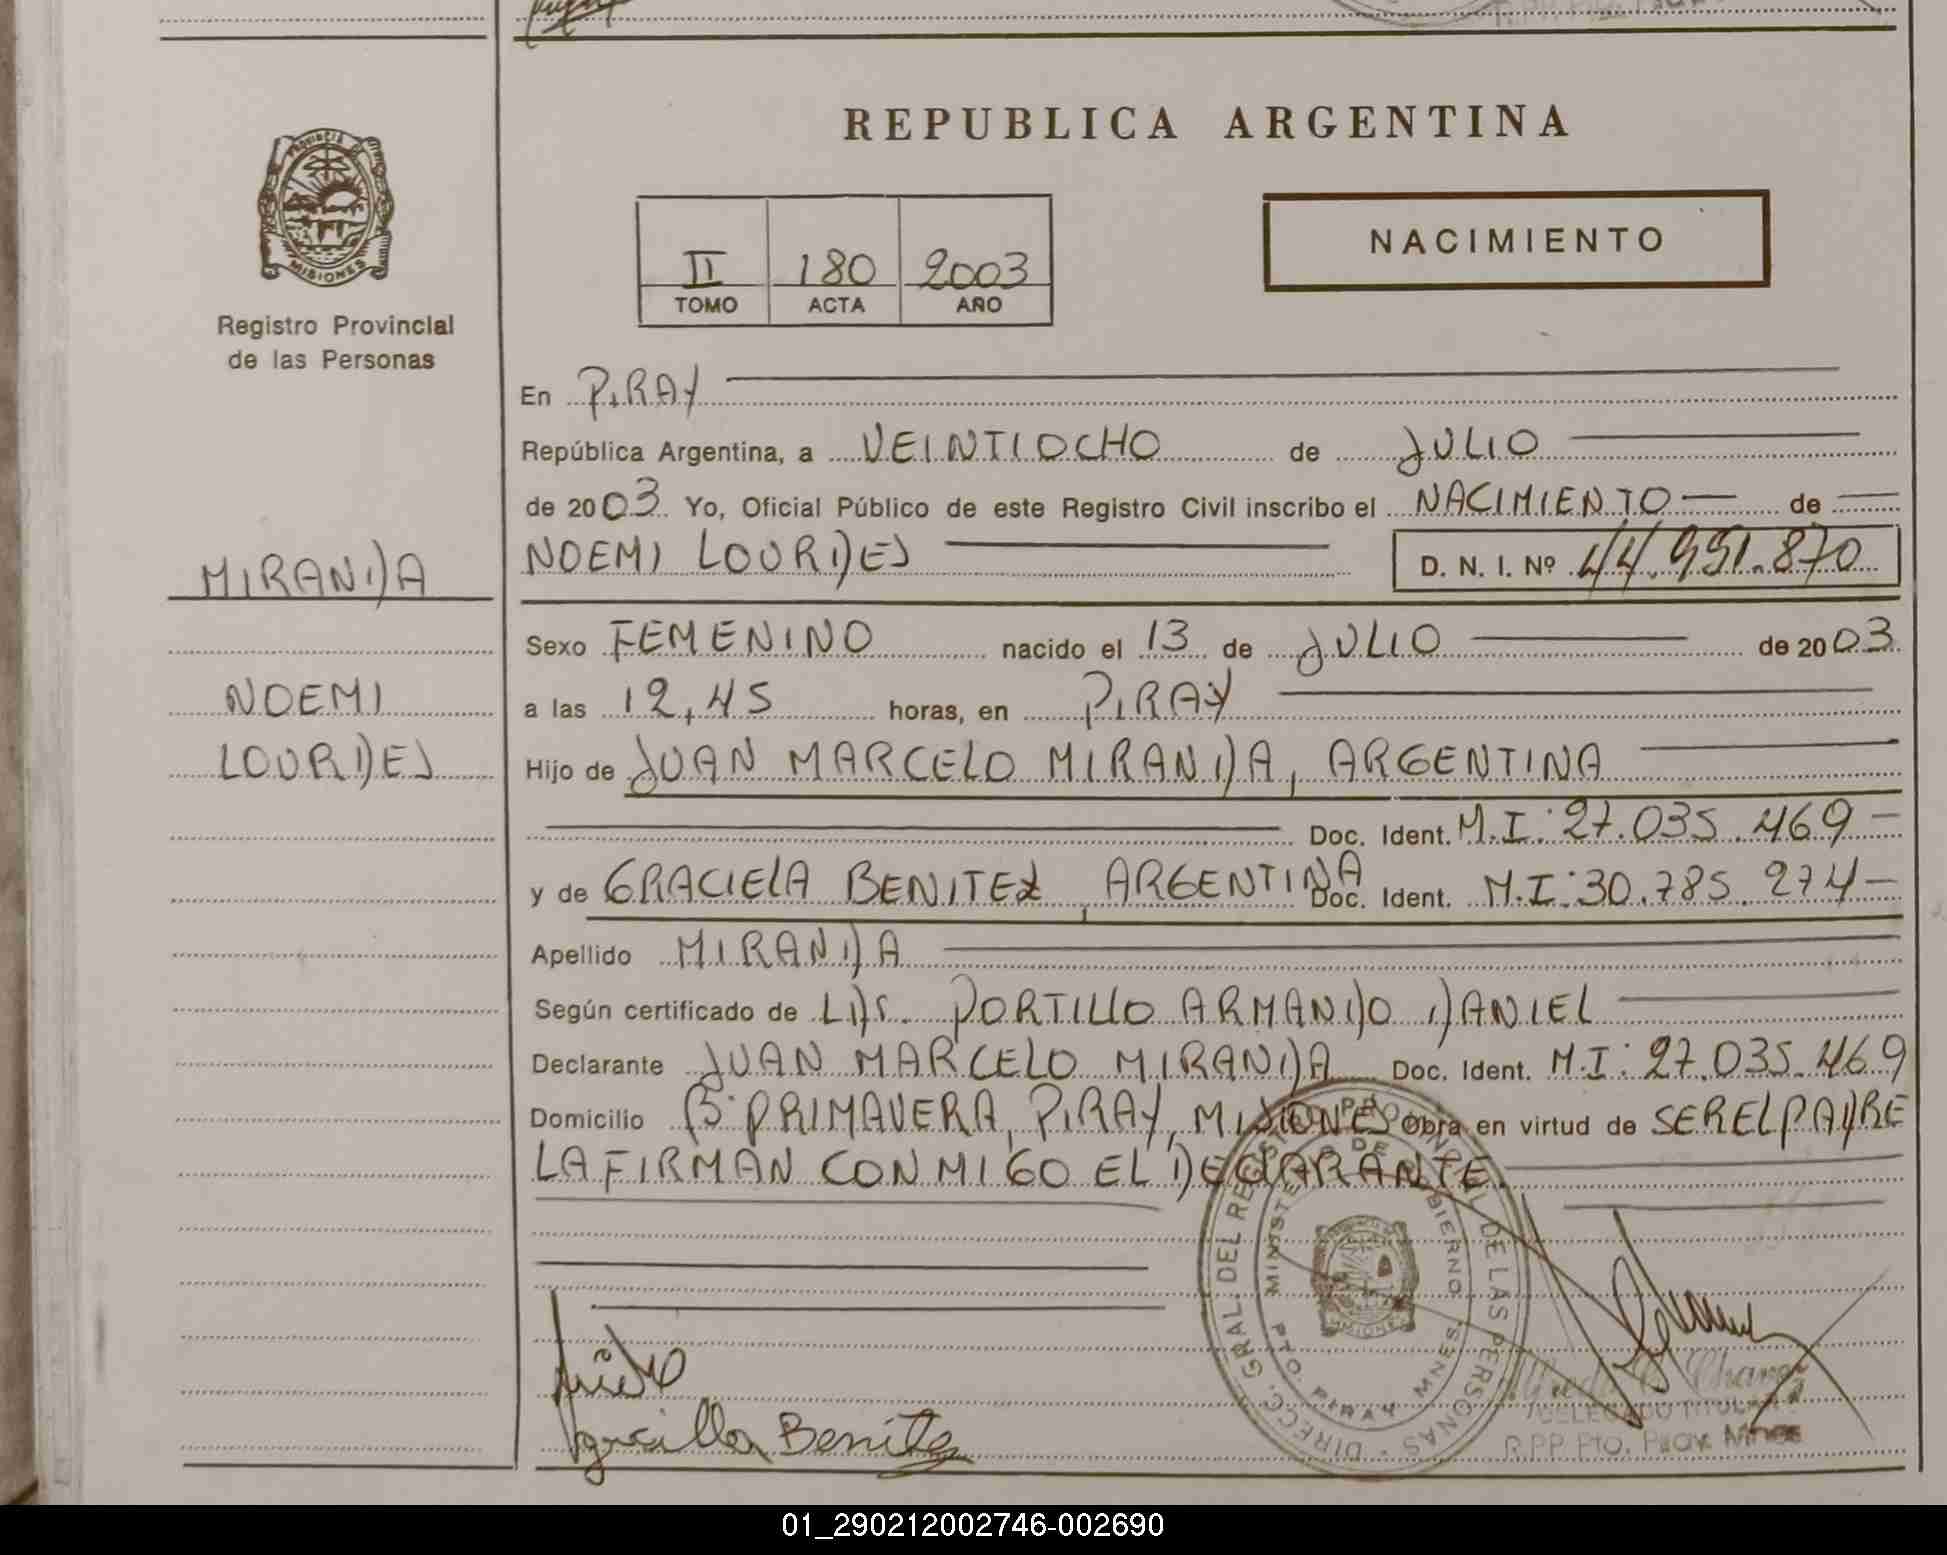 REPUBLICA ARGENTINA
PROVINCIA DE
MISIONES
Registro Provincial
de las Personas
II 180 2003
TOMO ACTA AÑO
NACIMIENTO
En PIRAY
República Argentina, a VEINTIOCHO de JULIO
de 2003 Yo, Oficial Público de este Registro Civil inscribo el NACIMIENTO de
MIRANDA
NOEMI LOURDES D. N. I. Nº 44.991.870
Sexo FEMENINO nacido el 13 de JULIO de 2003
NOEMI
a las 12,45 horas, en PIRAY
LOURDES
Hijo de JUAN MARCELO MIRANDA, ARGENTINA
Doc. Ident. M.I: 27.035.469
y de GRACIELA BENITEZ, ARGENTINA Doc. Ident. M.I: 30.785.274
Apellido MIRANDA
Según certificado de LDS. PORTILLO ARMANDO DANIEL
Declarante JUAN MARCELO MIRANDA Doc. Ident. M.I: 27.035.469
Domicilio Bº PRIMAVERA, PIRAY, MISIONES Obra en virtud de SER EL PADRE
LA FIRMAN CONMIGO EL DECLARANTE.
DIRECC. GRAL. DEL REGISTRO PROVINCIAL DE LAS PERSONAS
MINISTERIO DE GOBIERNO
PTO. PIRAY MNES.
MISIONES
Chavez
DELEGADO TITULAR
R.P.P. Pto. Piray Mnes
Benitez
01_290212002746-002690